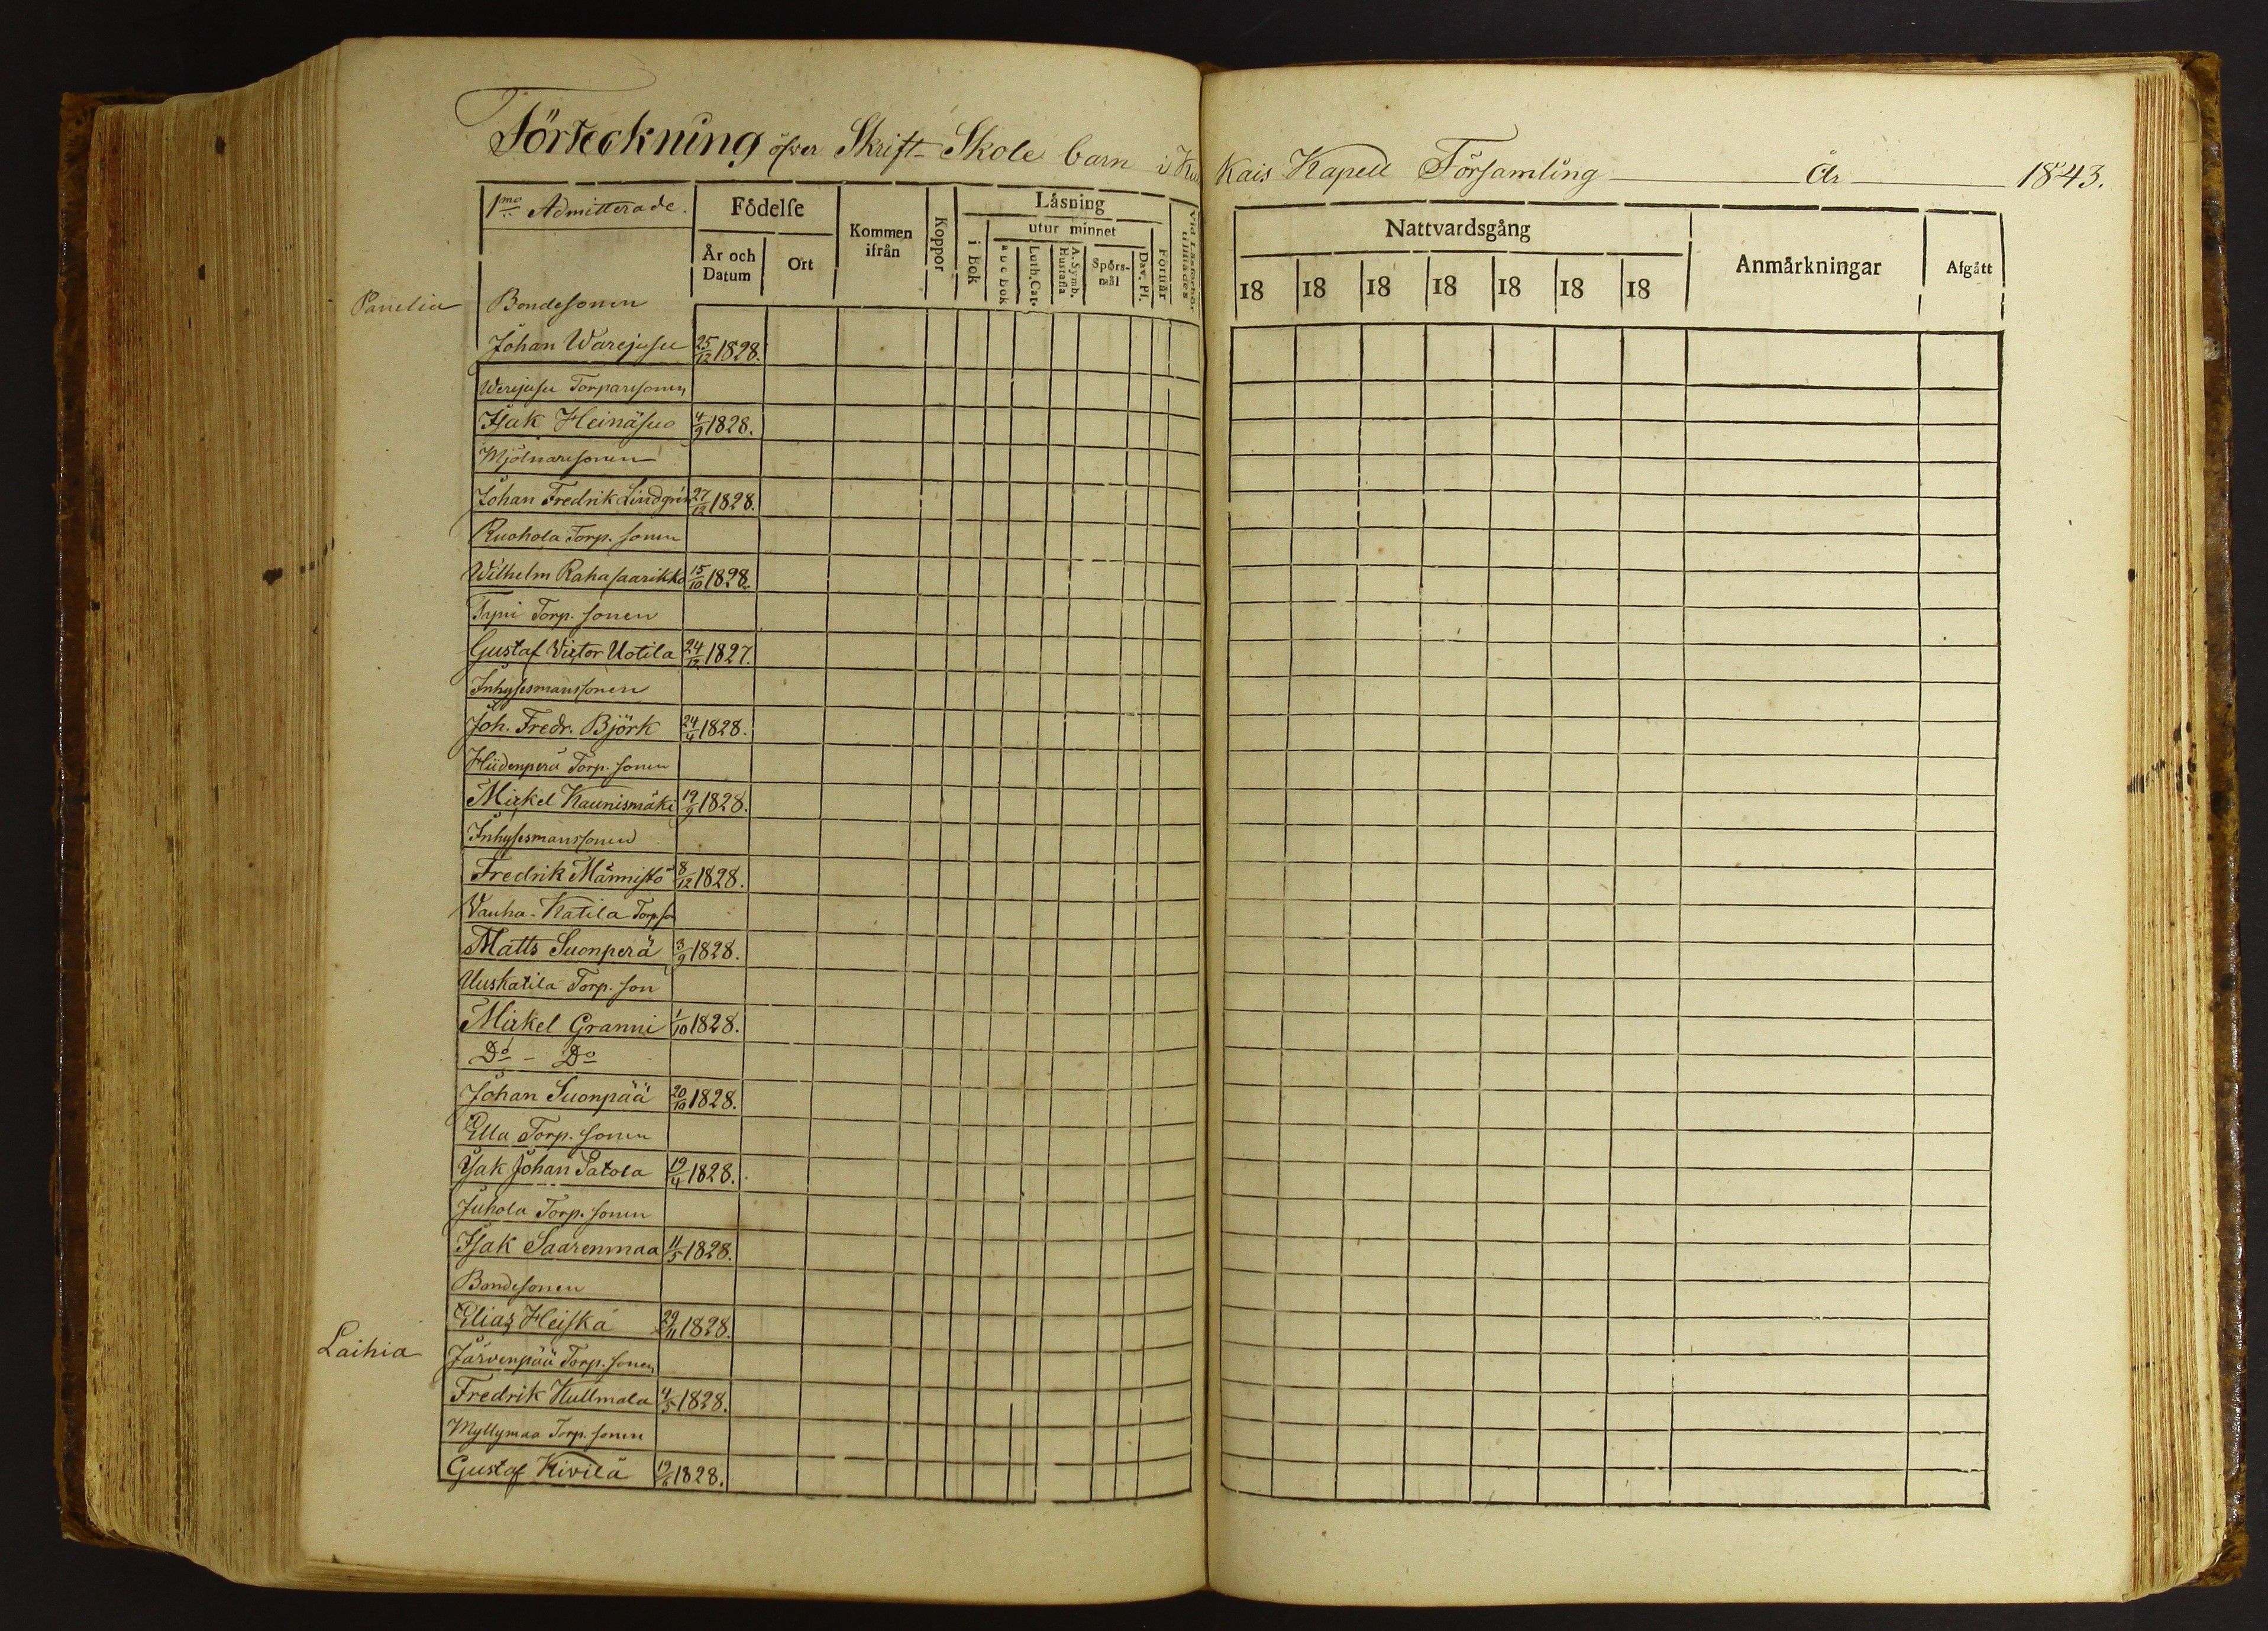 Förteckning öfver Skrift-Skole barn i Kiu
kais Kapell Församling År 1843.
1mo Admitterade.
Födelse
År och Datum
Ort
Kommen ifrån
Koppor
Läsning
i bok
utur minnet
a b c bok
Luth. Cat.
A. Symb. Hustafla
Spörsmål
Dav. Ps.
Förstår
Nattvardsgång
18 18 18 18 18 18 18
Anmärkningar
Afgått
Panelia Bondesonen
Johan Warejusu 25/12 1828.
Werejusu Torparesonen
Isak Heinäsuo 4/9 1828.
Mjölnaresonen
Johan Fredrik Lindgrén 27/12 1828.
Ruohola Torp. sonen
Wilhelm Rahasaarikko 15/10 1828.
Typi Torp. sonen
Gustaf Victor Uotila 24/12 1827.
Inhysesmanssonen
Joh. Fredr. Björk 24/4 1828.
Hiidenperä Torp. sonen
Mickel Kaunismäki 19/9 1828.
Inhysesmanssonen
Fredrik Männistö 8/12 1828.
Vanha-Katila Torp so
Matts Suonperä 3/9 1828.
Uuskatila Torp. son
Mickel Granni 1/10 1828.
Do - Do
Johan Suonpää 20/10 1828.
Ella Torp. sonen
Isak Johan Patola 19/4 1828.
Juhola Torp. sonen
Isak Saarenmaa 11/5 1828.
Bondesonen
Elias Heiska 29/11 1828.
Laihia Järvenpää Torp. sonen
Fredrik Kullmala 4/5 1828.
Myllymaa Torp. sonen
Gustaf Kivilä 19/6 1828.